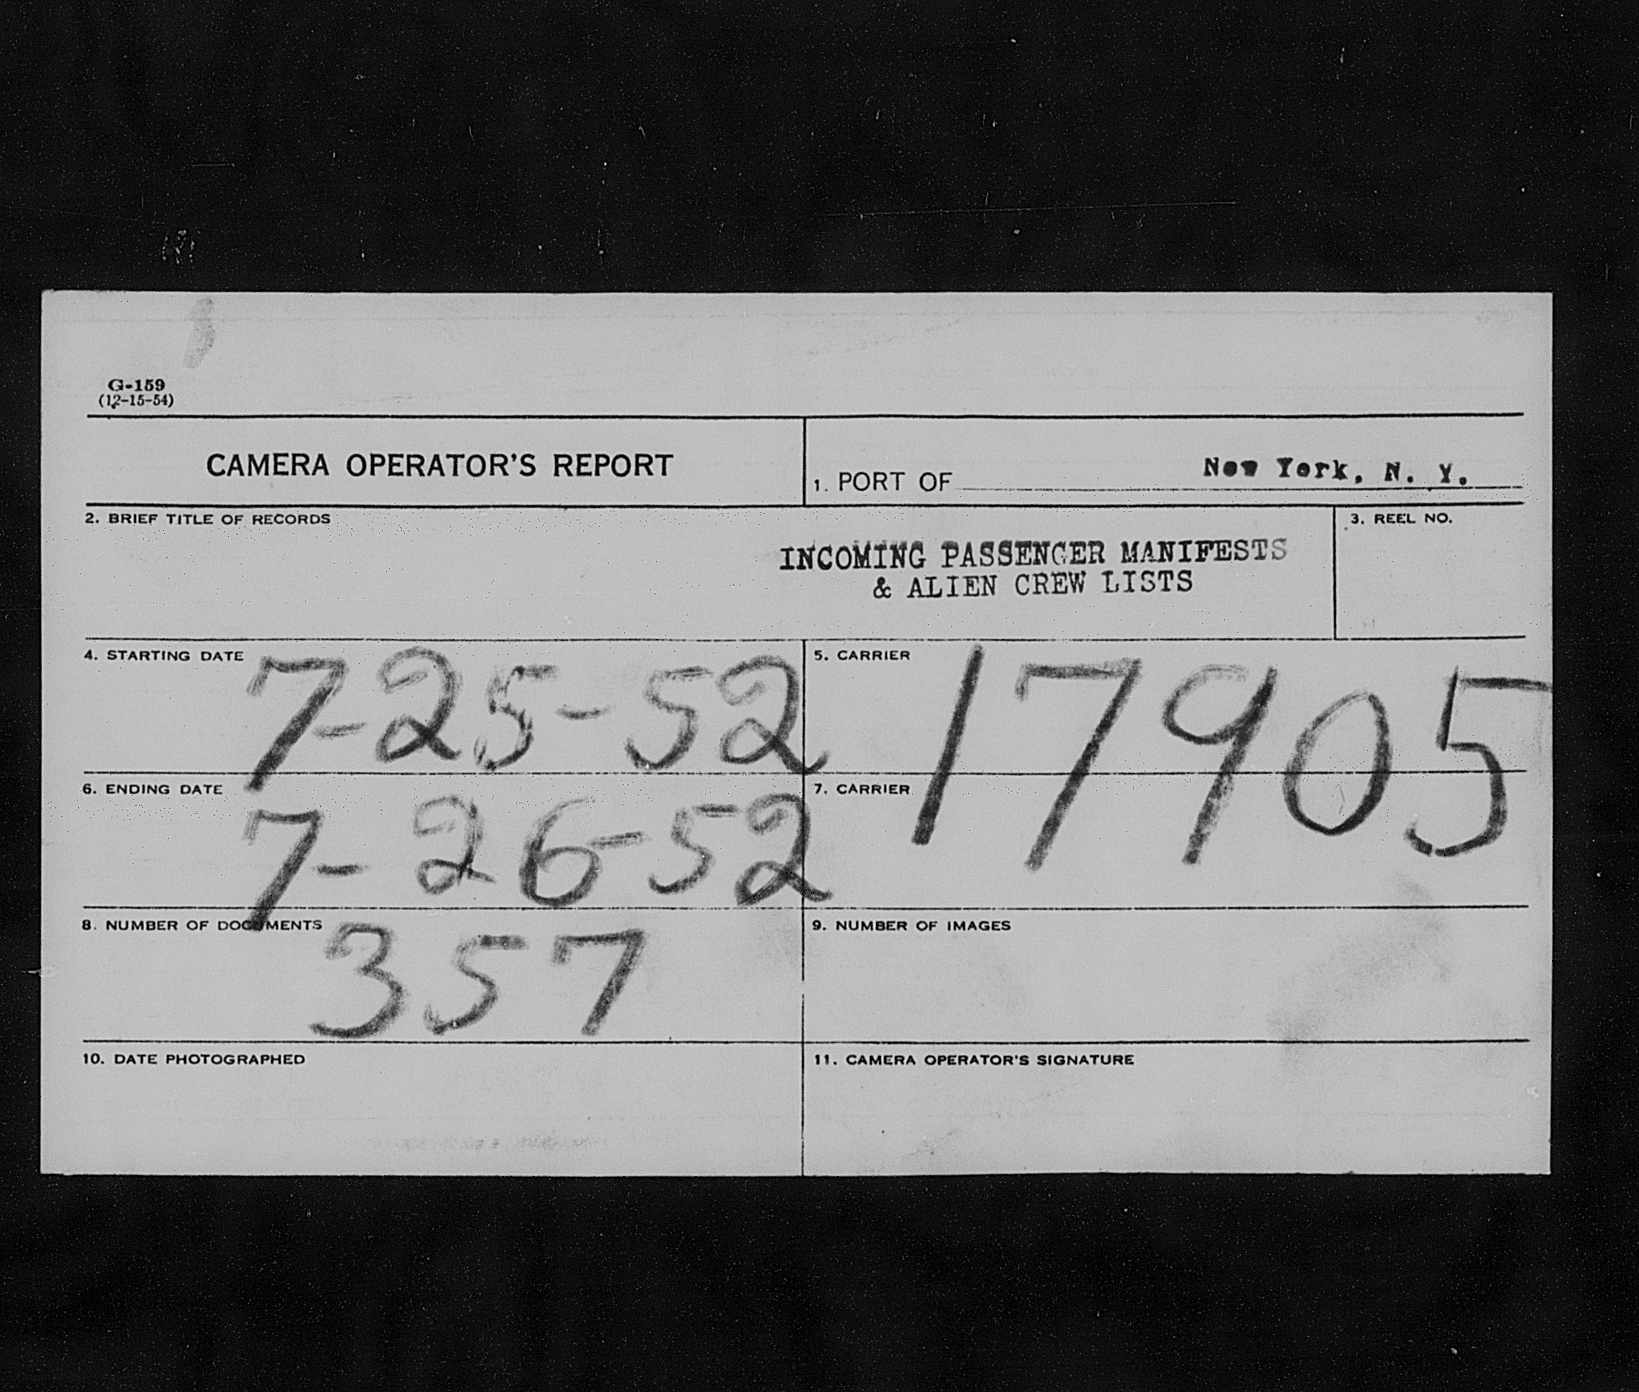 G-159
(12-15-54)
CAMERA OPERATOR'S REPORT
1. PORT OF New York, N. Y.
2. BRIEF TITLE OF RECORDS
INCOMING PASSENGER MANIFESTS
& ALIEN CREW LISTS
3. REEL NO.
4. STARTING DATE 7-25-52
5. CARRIER
17905
6. ENDING DATE
7-26-52
7. CARRIER
8. NUMBER OF DOCUMENTS
357
9. NUMBER OF IMAGES
10. DATE PHOTOGRAPHED
11. CAMERA OPERATOR'S SIGNATURE